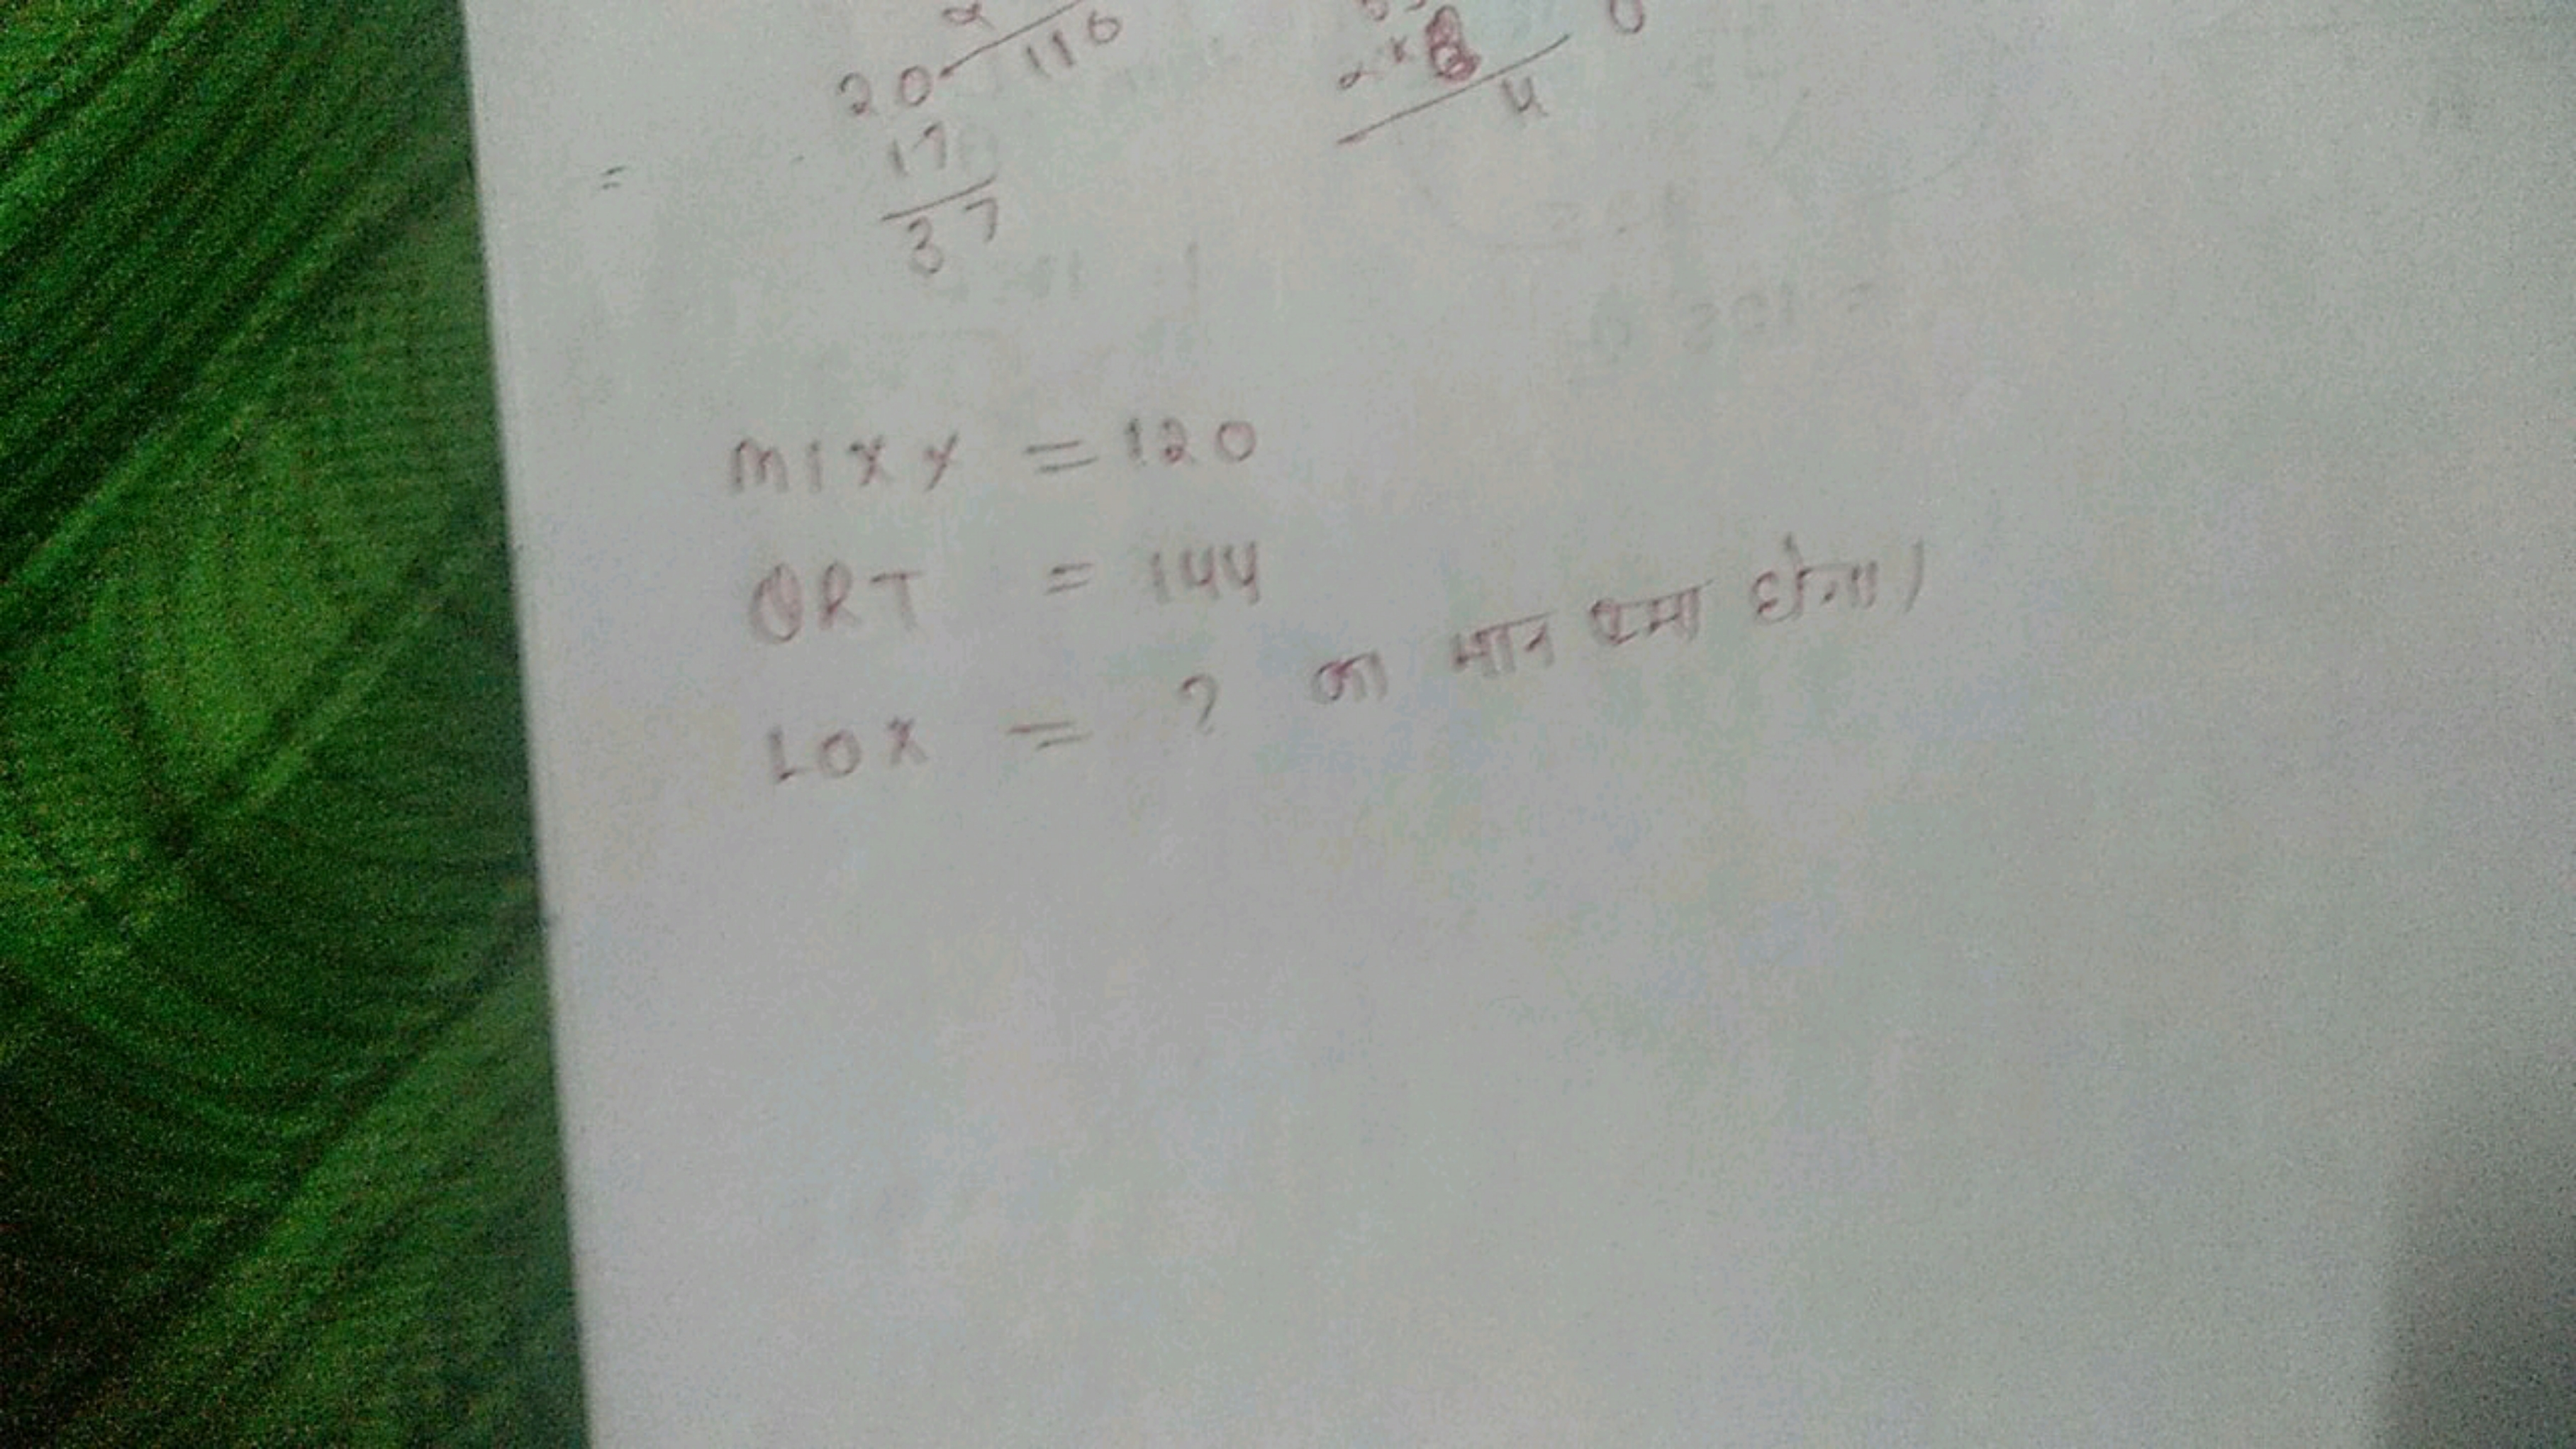 20 110
17
=
37
4
MIXY = 120
QRT = 144
LOX = ? का मान क्या होगा।